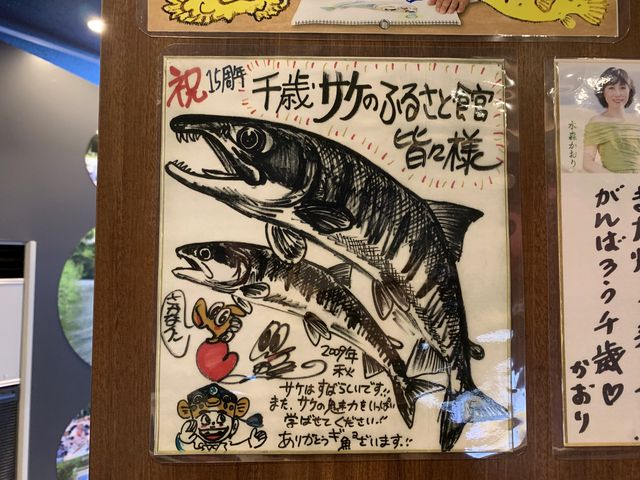 祝 15周年 千歳サケのふるさと館
皆々様
さかなくん
2009年
秋
サケはすばらしいです!!
また、サケの魅力をいっぱい
学ばせてください!!
ありがとうギョ魚²ざいます!!
水森かおり
がんばろう千歳♡
かおり